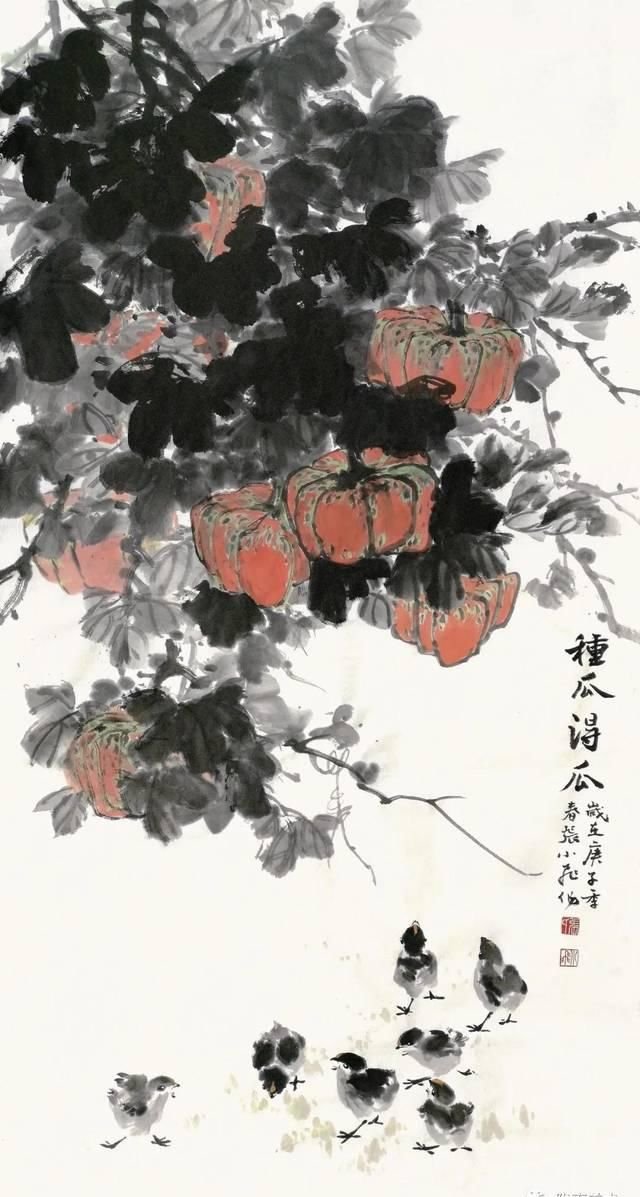 種瓜得瓜
歲在庚子季
春張小